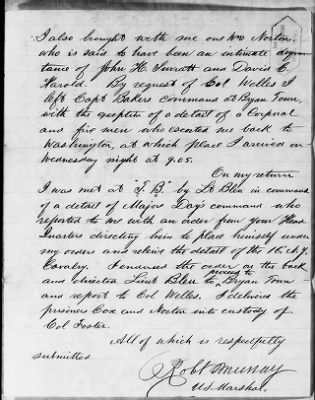 I also brought with me one Wm Norton,
who is said to have been an intimate acquain
tance of John H. Surratt and David C.
Harold. By request of Col Welles I
left Capt Bakers command at Bryan Town,
with the exception of a detail of a Corporal
and five men who escorted me back to
Washington, at which place I arrived on
Wednesday night at 9.05.
On my return
I was met at "T.B." by Lt Bleu in command
of a detail of Major Days command who
reported to me with an order from your Head
Quarters directing him to place himself under
my orders and relieve the detail of the N.Y.
Cavalry. I endorsed the order on the back
and directed Lieut Bleu to proceed to Bryan Town
and report to Col Welles. I delivered the
prisoners Cox and Norton into custody of
Col Foster.
All of which is respectfully
submitted
Robt Murray
U.S. Marshal.